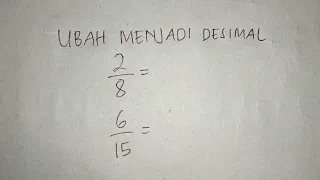 UBAH MENJADI DESIMAL
2/8 =
6/15 =